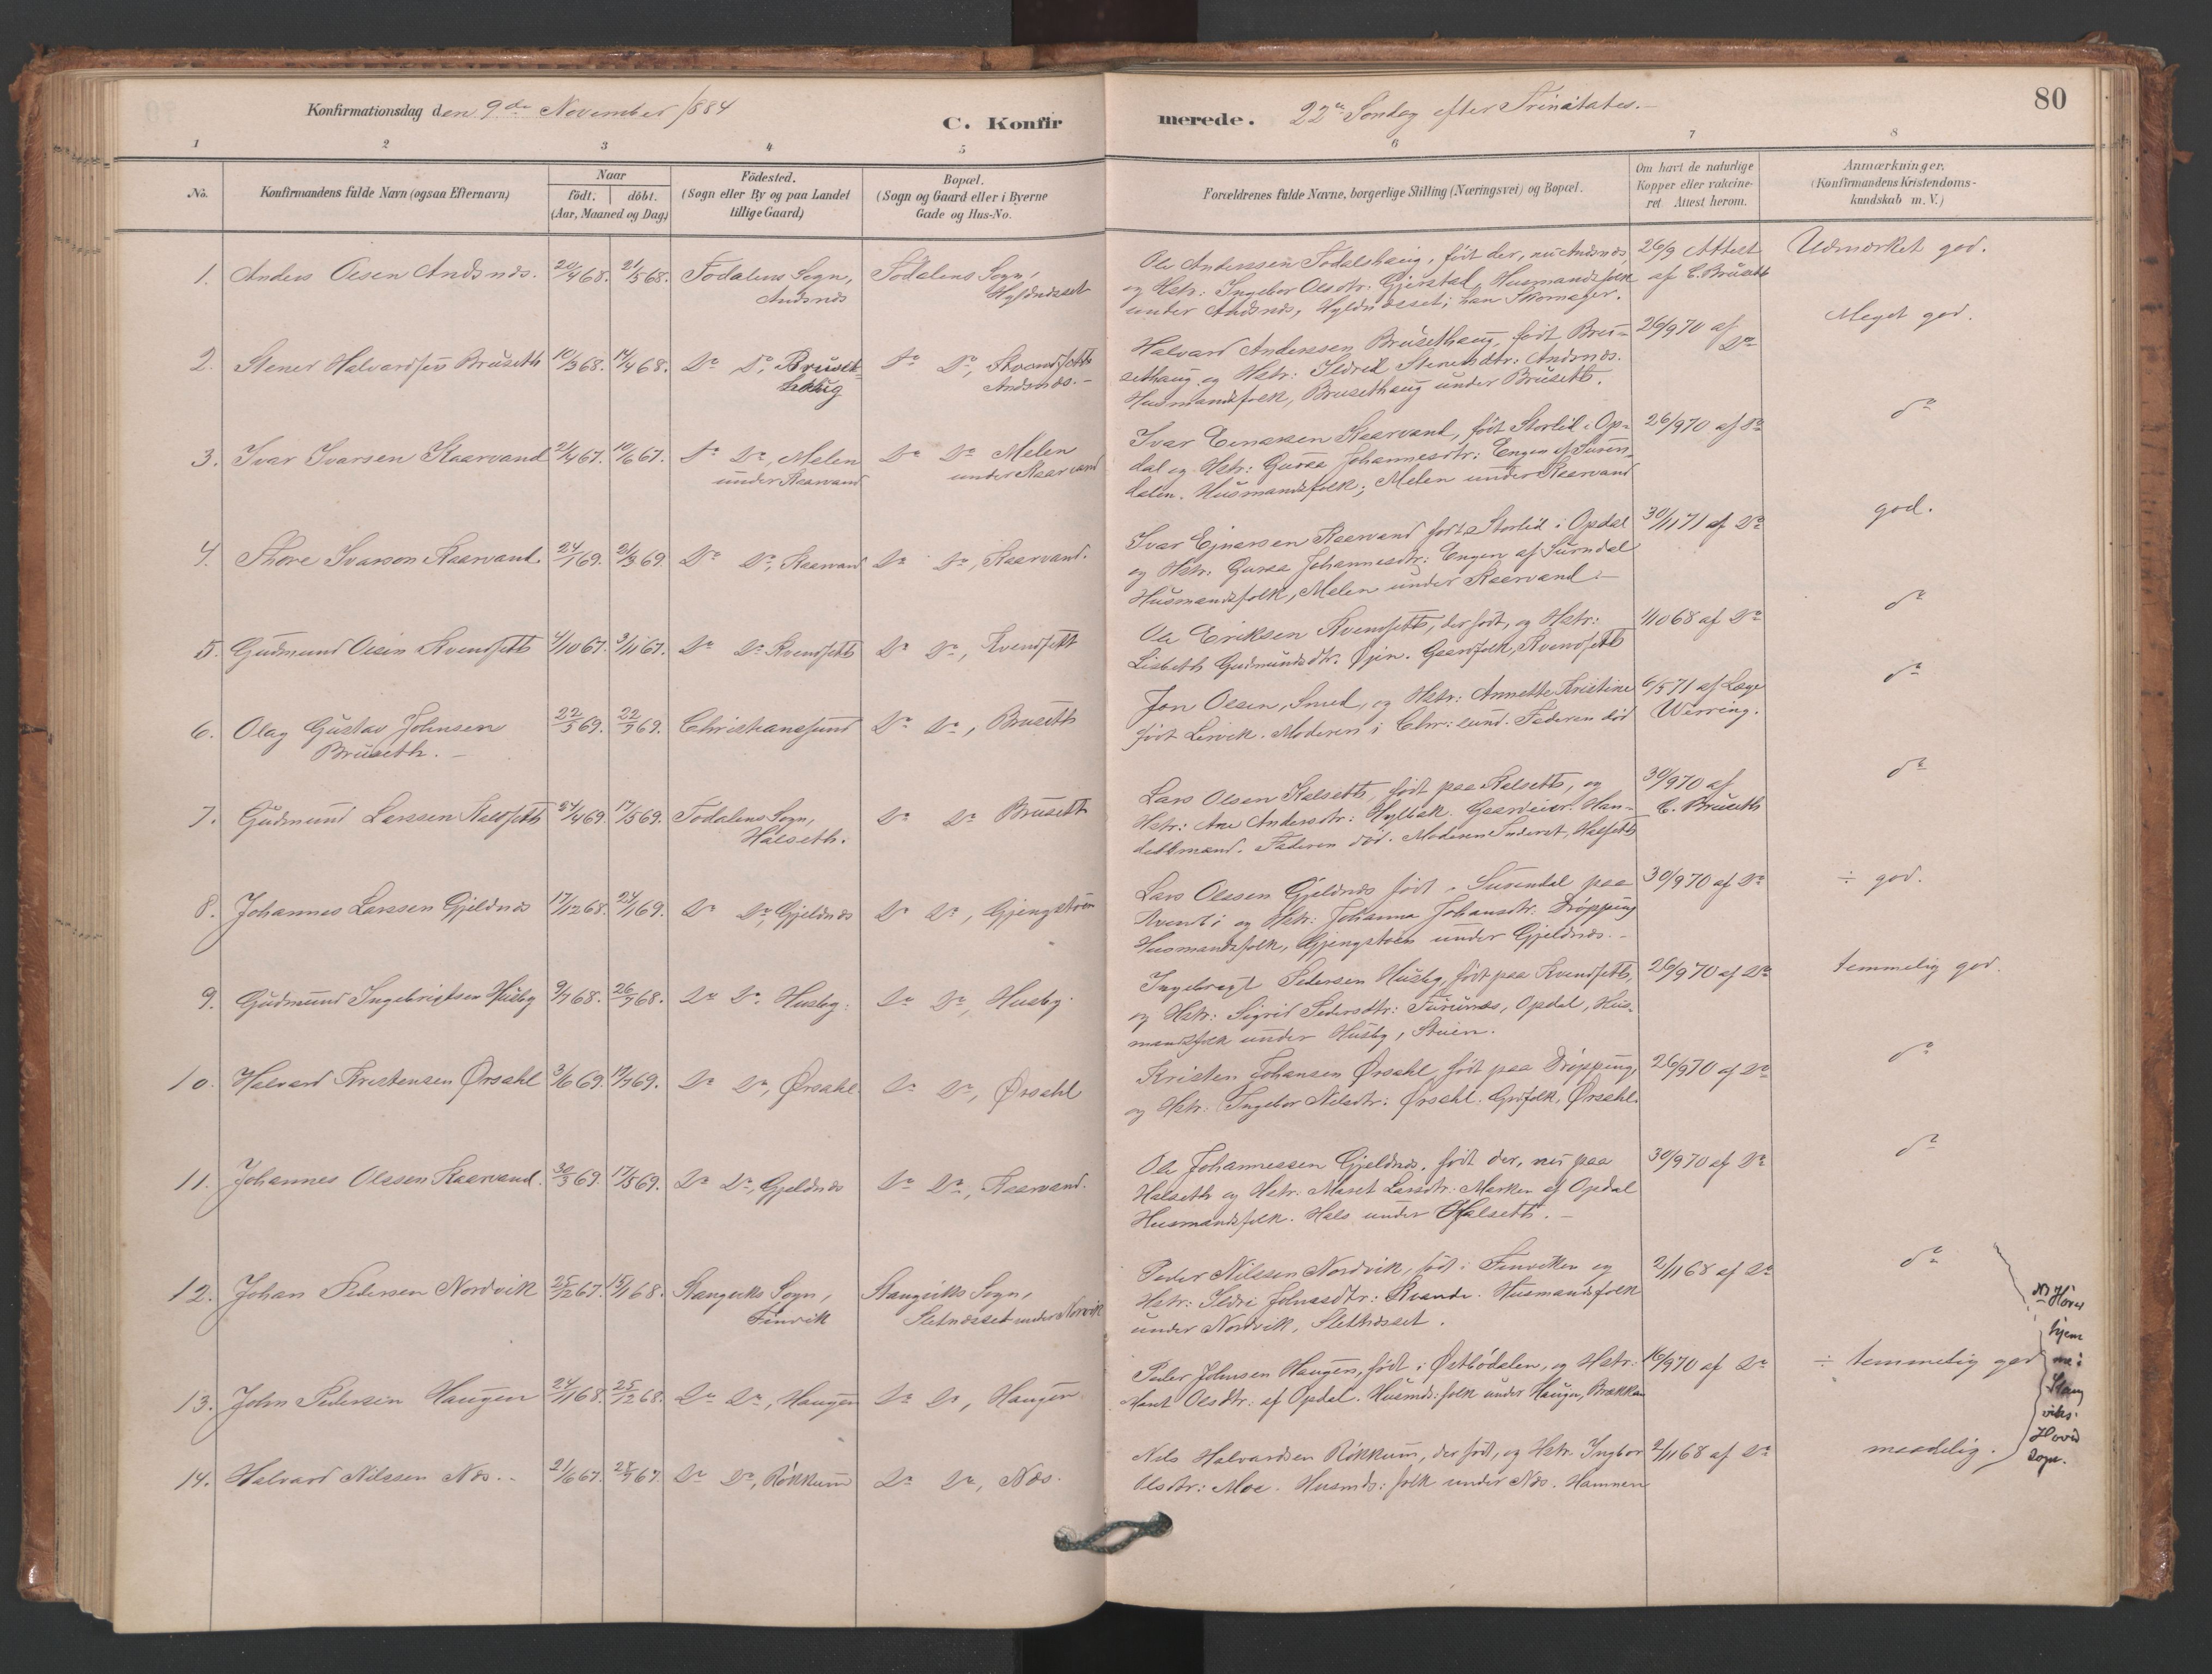 80
Konfirmationsdag den 9de November 1884
C. Konfirmerede.
22de Søndag efter Trinitates.
1 2 3 4 5 6 7 8
No.
Konfirmandens fulde Navn (ogsaa Efternavn)
Naar
födt. döbt.
(Aar, Maaned og Dag)
Födested.
(Sogn eller By og paa Landet
tillige Gaard)
Bopæl.
(Sogn og Gaard eller i Byerne
Gade og Hus-No.
Forældrenes fulde Navne, borgerlige Stilling (Næringsvei) og Bopæl.
Om havt de naturlige
Kopper eller vakcine-
ret Attest herom.
Anmærkninger,
(Konfirmandens Kristendoms-
kundskab m. V.)
1. Anders Olsen Andsnæs. 20/4 68. 21/5 68. Todalens Sogn, Todalens Sogn,
Andsnæs
Ole Anderssen Todalshaug, født der, nu Andsnæs,
og Hstr: Ingebor Olsdtr: Gjerstal, Husmandsfolk
under Andsnæs, Hyldnæsset; han Skomager.
26/9 Attest
af C. Bruseth
Udmærket god.
2. Stener Halvardsen Bruseth 10/3 68. 14/4 68. Do Do, Bruset- Do Do,
haug Andsnæs.
Halvard Anderssen Brusethaug, født Bru-
sethaug og Hstr: Ildrid Stenersdtr: Andsnæs.
Husmandsfolk, Brusethaug under Bruseth.
26/9 70 af
Do
Meget god.
3. Ivar Ivarsen Kaarvand 21/4 67. 10/6 67. Do Do, Melen Do Do Melen
under Kaarvand under Kaarvand
Ivar Einarsen Kaarvand, født Storlid i Op-
dal og Hstr: Guraa Johannesdtr: Engen af Suren-
dalen. Husmandsfolk; Melen under Kaarvand
26/9 70 af Do
do
4. Thore Ivarson Kaarvand. 24/1 69. 21/3 69. Do Do, Kaarvand Do Do, Kaarvand.
Ivar Ejnarsen Kaarvand født Storlid i Opdal
og Hstr: Guraa Johannesdtr: Engen af Surndal
Husmandsfolk, Melen under Kaarvand.
30/11 71 af Do
god.
5. Gudmund Olsen Kvendseth 4/10 67. 3/11 67. Do Do Kvendseth Do Do, Kvendseth
Ole Eriksen Kvendseth, der født, og Hstr:
Lisbeth Gudmundsdtr. Øjen. Gaardfolk, Kvendseth
1/10 68 af Do
do
6. Olag Gustav Johnsen 22/3 69. 22/9 69. Christianssund Do Do, Bruseth
Bruseth.
Jon Olsen, Smed, og Hstr: Annette Kristine
født Lervik. Moderen i Chr:sund. Faderen död
6/5 71 af Læge
Werring.
do
7. Gudmund Larssen Halseth 27/4 69. 17/5 69. Todalens Sogn, Do Do Bruseth
Halseth.
Lars Olsen Halseth, født paa Halseth, og
Hstr: Ane Andersdtr: Hylbak. Gaardeier. Han-
delsmand. Faderen död. Moderen Inderst, Halseth
30/9 70 af
C. Bruseth
do
8. Johannes Larssen Gjeldnæs 17/12 68. 24/1 69. Do Do, Gjeldnæs Do Do, Gjengstøen
Lars Olssen Gjeldnæs født i Surendal paa
og Hstr: Johanna Johansdtr: Drøpping
Husmandsfolk, Gjengstøen under Gjeldnæs.
30/9 70 af Do
÷ god.
9. Gudmund Ingebrigtsen Husby 9/7 68. 26/7 68. Do Do. Husby. Do Do, Husby.
Ingebragt Pedersen Husby, født paa Kvendseth,
og Hstr: Sigrid Pedersdtr: Furunæs, Opdal, Hus-
mandsfolk under Husby, Stuen.
26/9 70 af Do
temmelig god.
10. Halvard Kristensen Ørsahl 3/6 69. 19/7 69. Do Do, Ørsahl. Do Do, Ørsahl
Kristen Johansen Ørsahl, født paa Drøpping,
og Hstr: Ingebor Nilsdtr: Ørsahl. Grdfolk, Ørsahl.
26/9 70 af Do
do
11. Johannes Olssen Kaarvand. 30/3 69. 17/5 69. Do Do, Gjeldnæs Do Do, Kaarvand.
Ole Johannessen Gjeldnæs, født der, nu paa
Halseth og Hstr. Maret Larsdtr: Marken af Opdal
Husmandsfolk. Hals under Halseth.
30/9 70 af Do
do
12. Johan Pedersen Nordvik 25/12 67. 15/1 68. Stangviks Sogn, Stangviks Sogn,
Finvik Sletnæsset under Norvik
Peder Nilssen Nordvik, født i Finviken og
Hstr: Ildri Johnsdtr: Kvande. Husmandsfolk
under Nordvik, Sletnæsset.
2/11 68 af Do
do
13. John Pedersen Haugen 24/11 68. 25/12 68. Do Do, Haugen Do Do, Haugen
Peder Johnsen Haugen, født i Østbødalen, og Hstr:
Marit Olsdtr: af Opdal. Husmds:folk under Haugen, Brækken
16/9 70 af Do
÷ temmelig god
14. Halvard Nilssen Næs. 21/6 67. 28/7 67. Do Do, Røkkum Do Do, Næs.
Nils Halvardsen Røkkum, der født, og Hstr. Ingbor
Olsdtr: Moe. Husmds:folk under Næs. Hamnen
2/11 68 af Do
maadelig.
Hører
hjem
me i
Stang
viks.
Hoved
sogn.